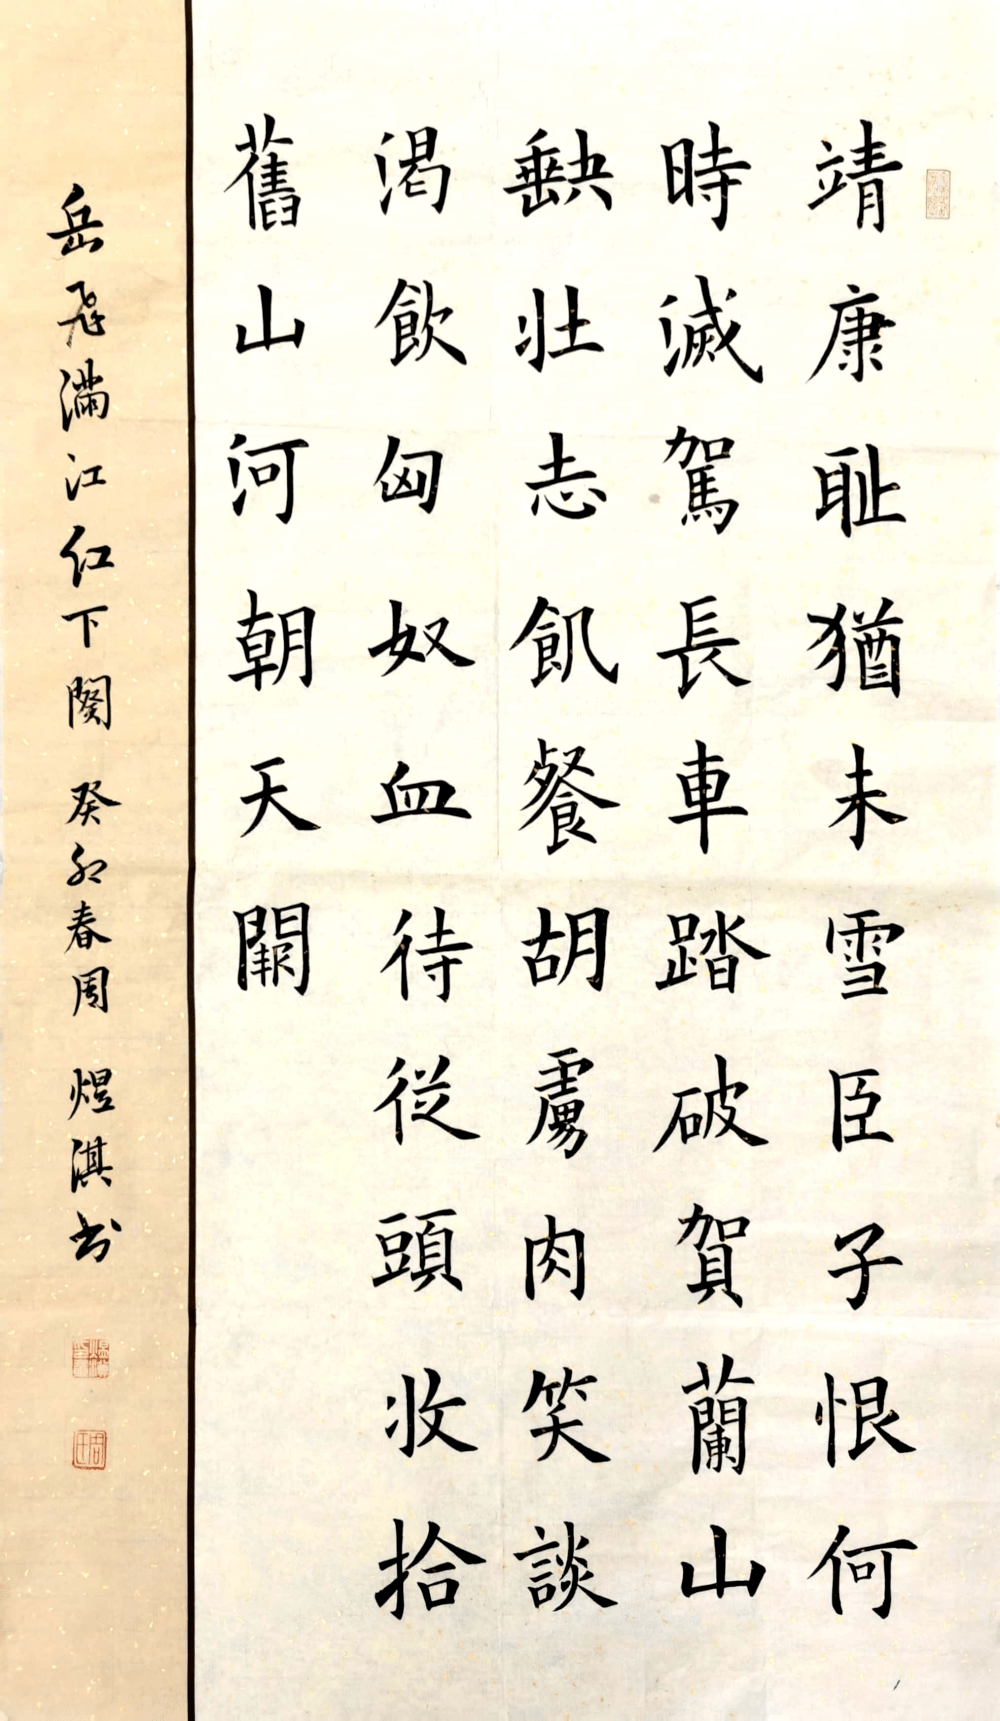 靖康耻猶未雪臣子恨何
時滅駕長車踏破賀蘭山
缺壯志飢餐胡虜肉笑談
渴飲匈奴血待從頭收拾
舊山河朝天闕
岳飛滿江红下闋 癸卯春周煜淇书